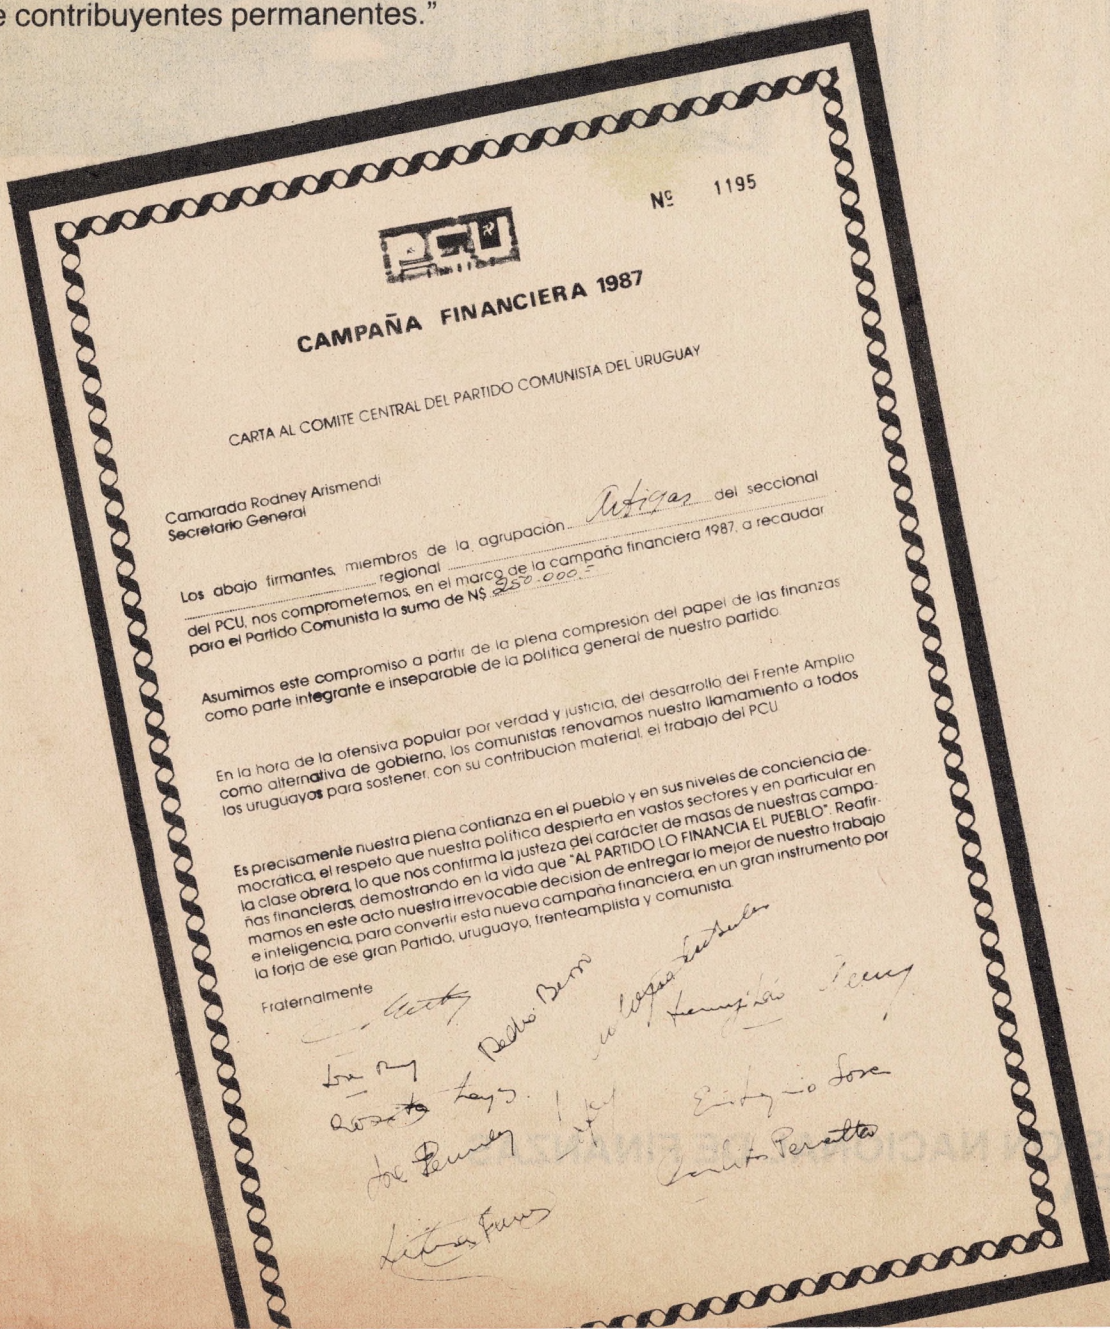 e contribuyentes permanentes.”
Nº 1195
PCU
CAMPAÑA FINANCIERA 1987
CARTA AL COMITE CENTRAL DEL PARTIDO COMUNISTA DEL URUGUAY
Camarada Rodney Arismendi
Secretario General
Los abajo firmantes, miembros de la agrupación Artigas del seccional
regional
del PCU, nos comprometemos, en el marco de la campaña financiera 1987, a recaudar
para el Partido Comunista la suma de N$ 250.000.=
Asumimos este compromiso a partir de la plena compresión del papel de las finanzas
como parte integrante e inseparable de la política general de nuestro partido.
En la hora de la ofensiva popular por verdad y justicia, del desarrollo del Frente Amplio
como alternativa de gobierno, los comunistas renovamos nuestro llamamiento a todos
los uruguayos para sostener, con su contribución material, el trabajo del PCU
Es precisamente nuestra plena confianza en el pueblo y en sus niveles de conciencia de-
mocrática, el respeto que nuestra política despierta en vastos sectores y en particular en
la clase obrera, lo que nos confirma la justeza del carácter de masas de nuestras campa-
ñas financieras, demostrando en la vida que "AL PARTIDO LO FINANCIA EL PUEBLO". Reafir-
mamos en este acto nuestra irrevocable decisión de entregar lo mejor de nuestro trabajo
e inteligencia, para convertir esta nueva campaña financiera, en un gran instrumento por
la forja de ese gran Partido, uruguayo, frenteamplista y comunista.
Fraternalmente
Pedro
José
Sosa
Peralta